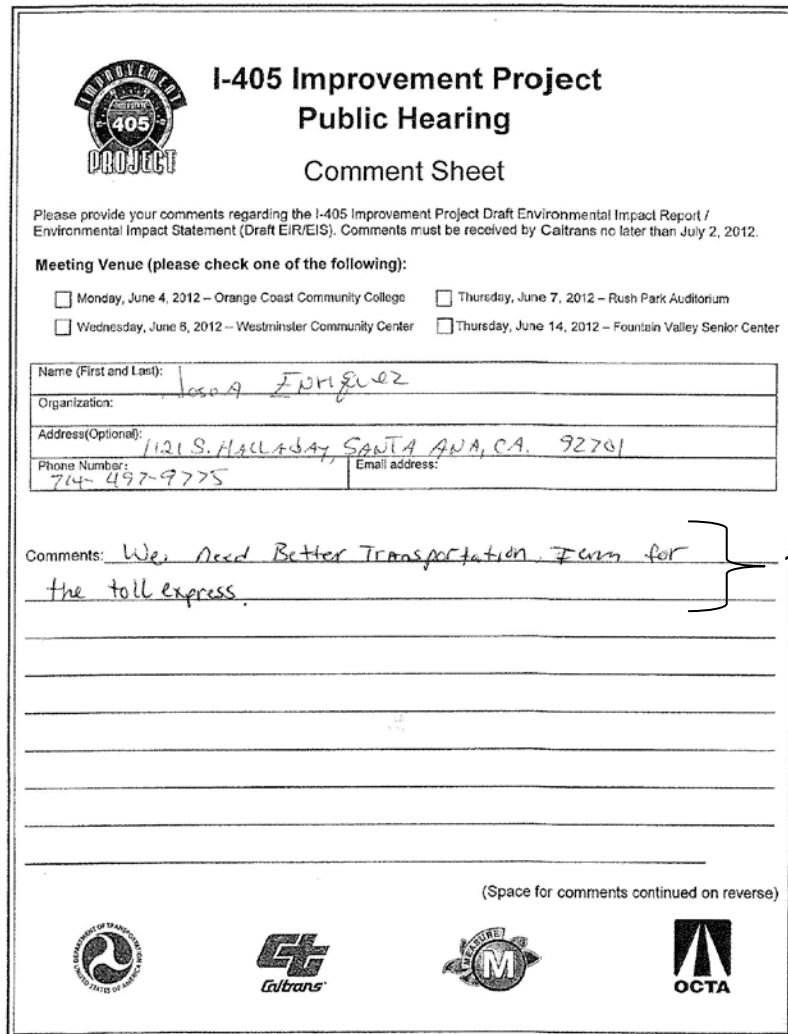 IMPROVEMENT
INTERSTATE
405
PROJECT
I-405 Improvement Project
Public Hearing
Comment Sheet
Please provide your comments regarding the I-405 Improvement Project Draft Environmental Impact Report /
Environmental Impact Statement (Draft EIR/EIS). Comments must be received by Caltrans no later than July 2, 2012.
Meeting Venue (please check one of the following):
Monday, June 4, 2012 – Orange Coast Community College
Thursday, June 7, 2012 – Rush Park Auditorium
Wednesday, June 6, 2012 – Westminster Community Center
Thursday, June 14, 2012 – Fountain Valley Senior Center
Name (First and Last): Enriquez
Organization:
Address(Optional): 1121 S. HALLADAY, SANTA ANA, CA. 92701
Phone Number: 714-497-9775
Email address:
Comments: We, need Better Transportation. for
the toll express.
(Space for comments continued on reverse)
DEPARTMENT OF TRANSPORTATION
UNITED STATES OF AMERICA
Caltrans
MEASURE
M
OCTA